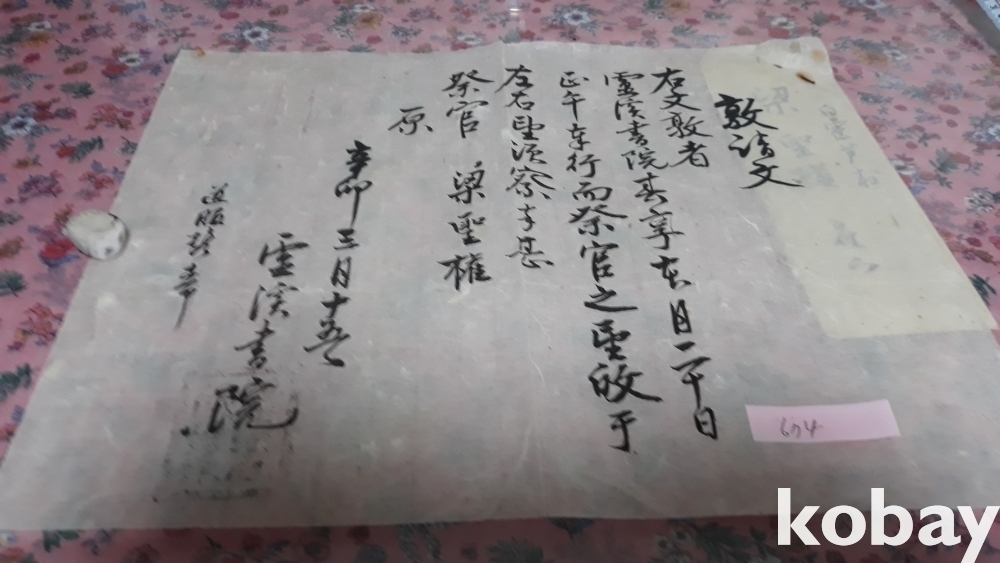 敦請文
右文敦者
靈溪書院春享本月二十日
正午奉行而祭官之望敀于
左右望須祭幸甚
祭官 梁聖權
原
辛卯三月十五日
靈溪書院
674
kobay